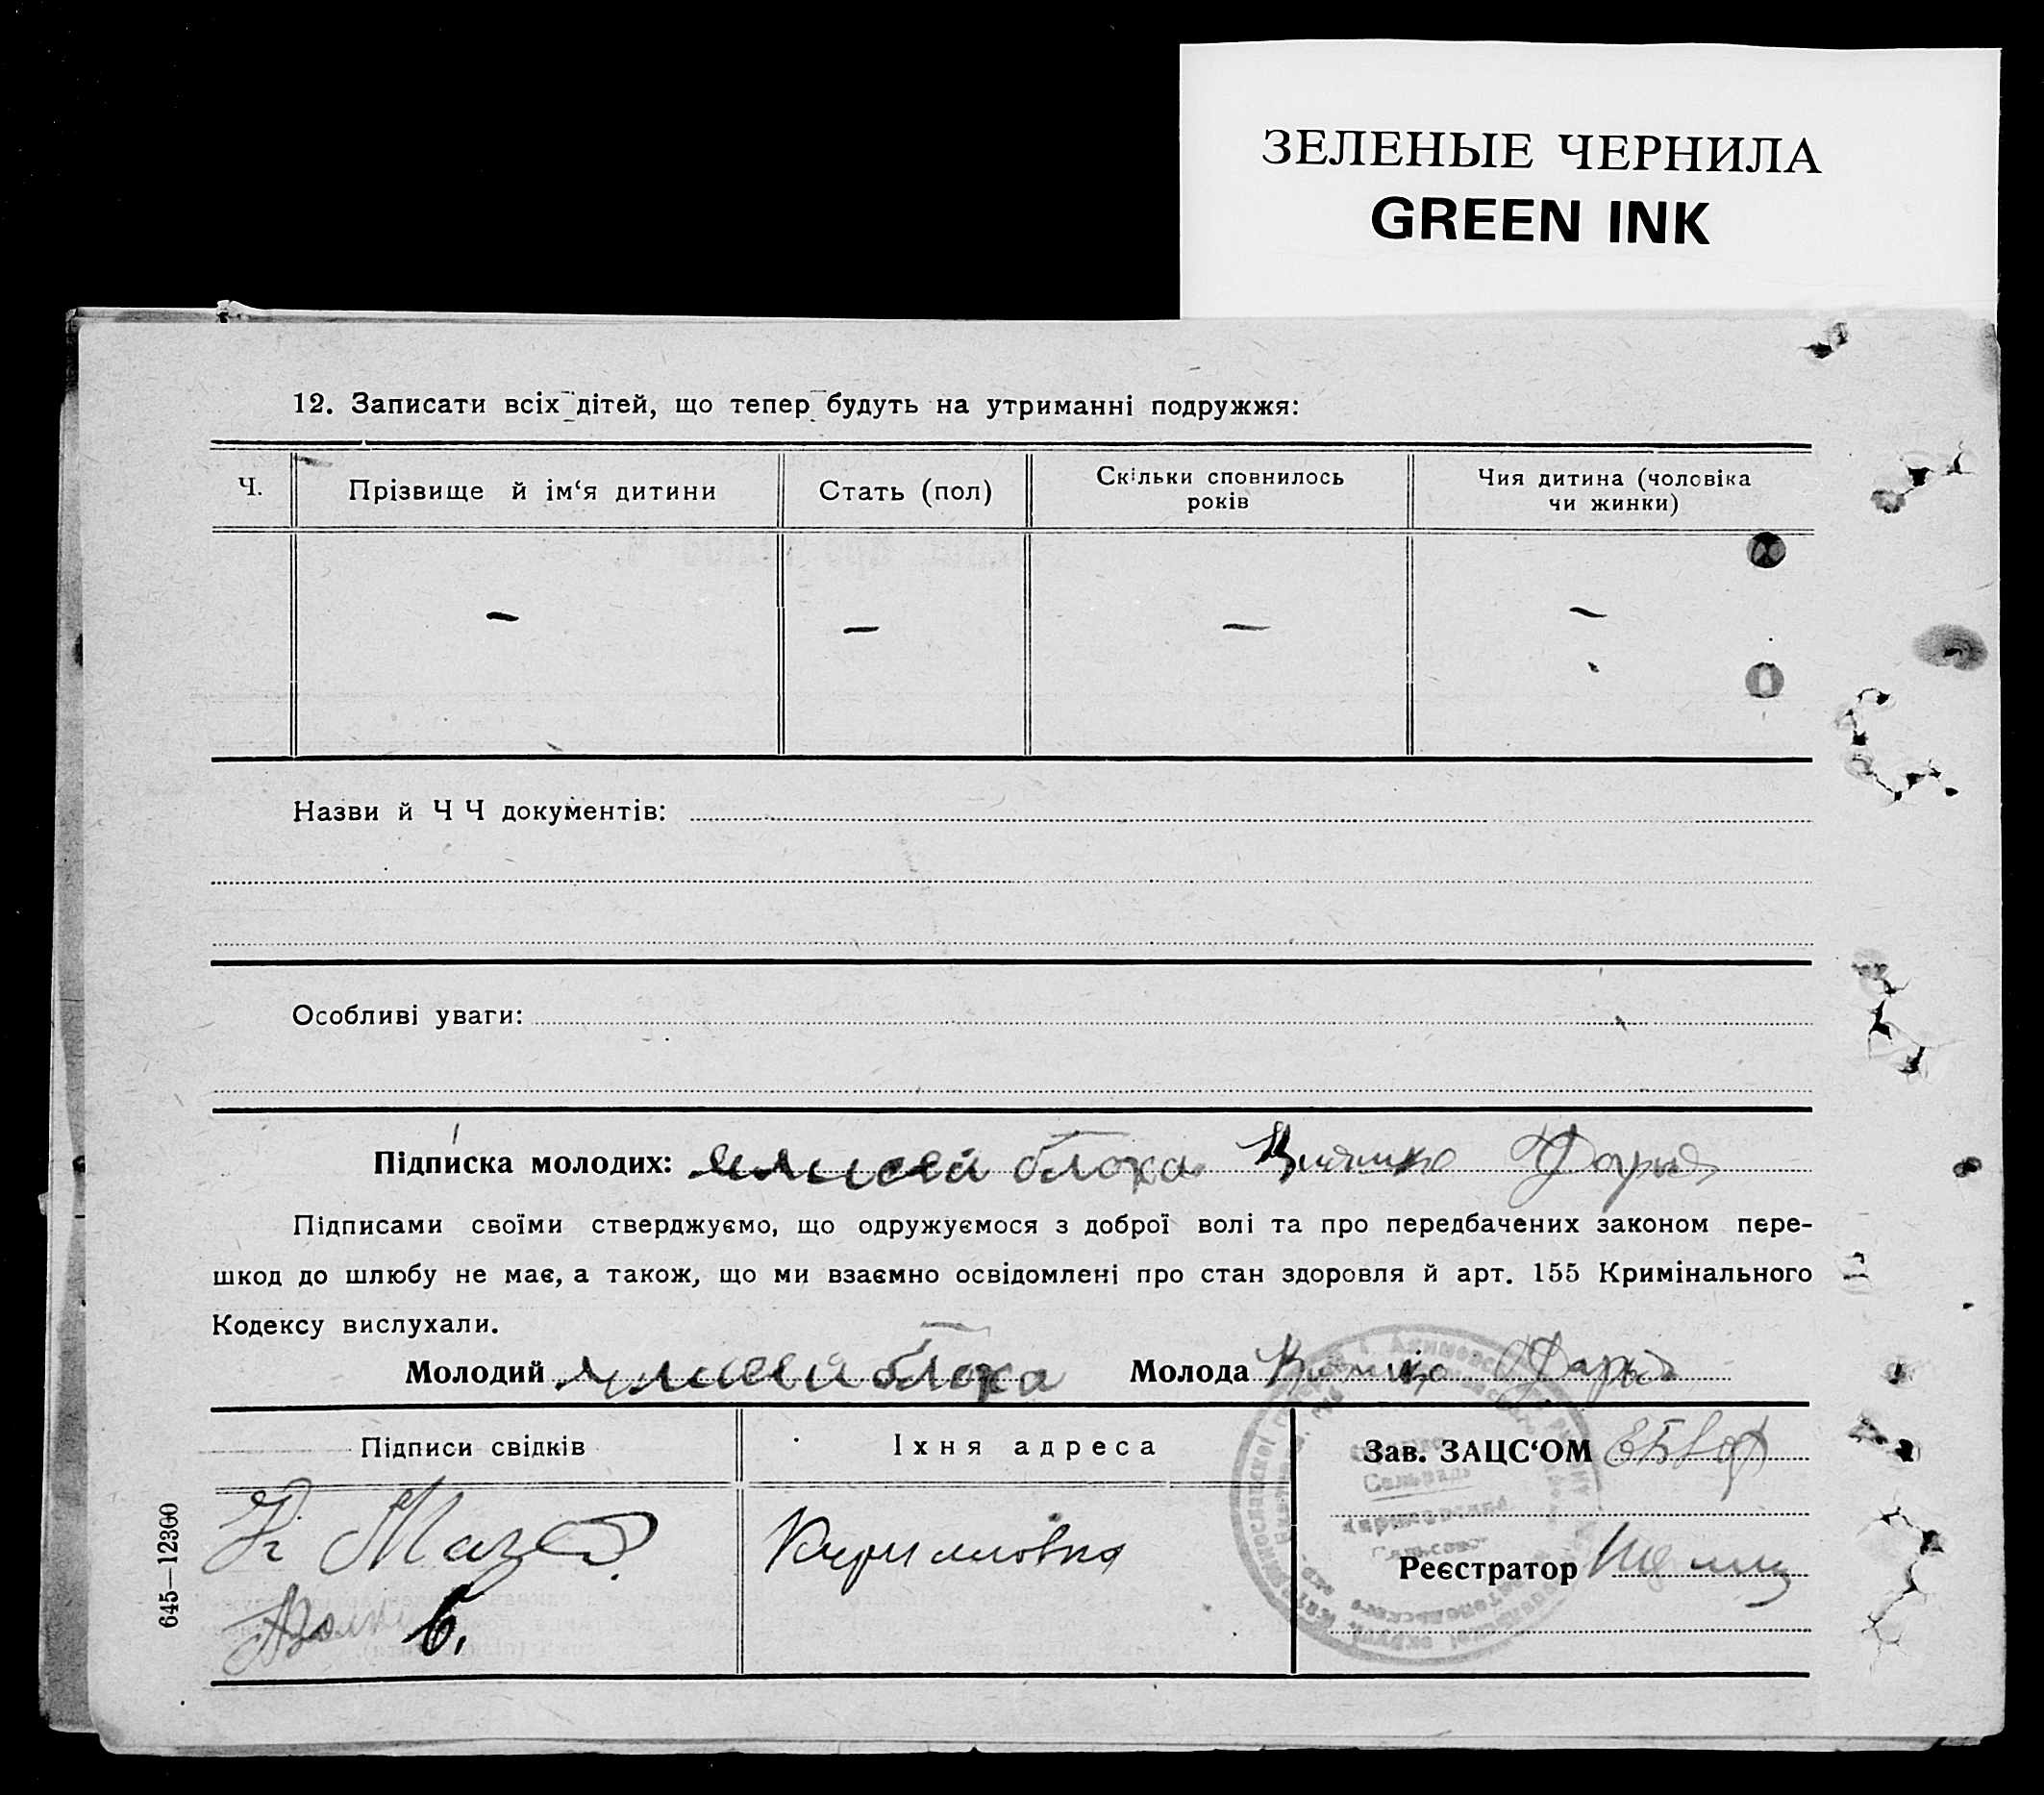 ЗЕЛЕНЫЕ ЧЕРНИЛА
GREEN INK
12. Записати всіх дітей, що тепер будуть на утриманні подружжя:
Ч. Прізвище й ім‘я дитини Стать (пол) Скільки сповнилось років Чия дитина (чоловіка чи жинки)
— — — —
Назви й Ч Ч документів:
Особливі уваги:
Підписка молодих: блоха
Підписами своїми стверджуємо, що одружуємося з доброї волі та про передбачених законом пере-
шкод до шлюбу не має, а також, що ми взаємно освідомлені про стан здоровля й арт. 155 Кримінального
Кодексу вислухали.
Молодий блоха Молода
Підписи свідків Їхня адреса Зав. ЗАЦС‘ОМ
Кирилловка
Реєстратор
645—12300